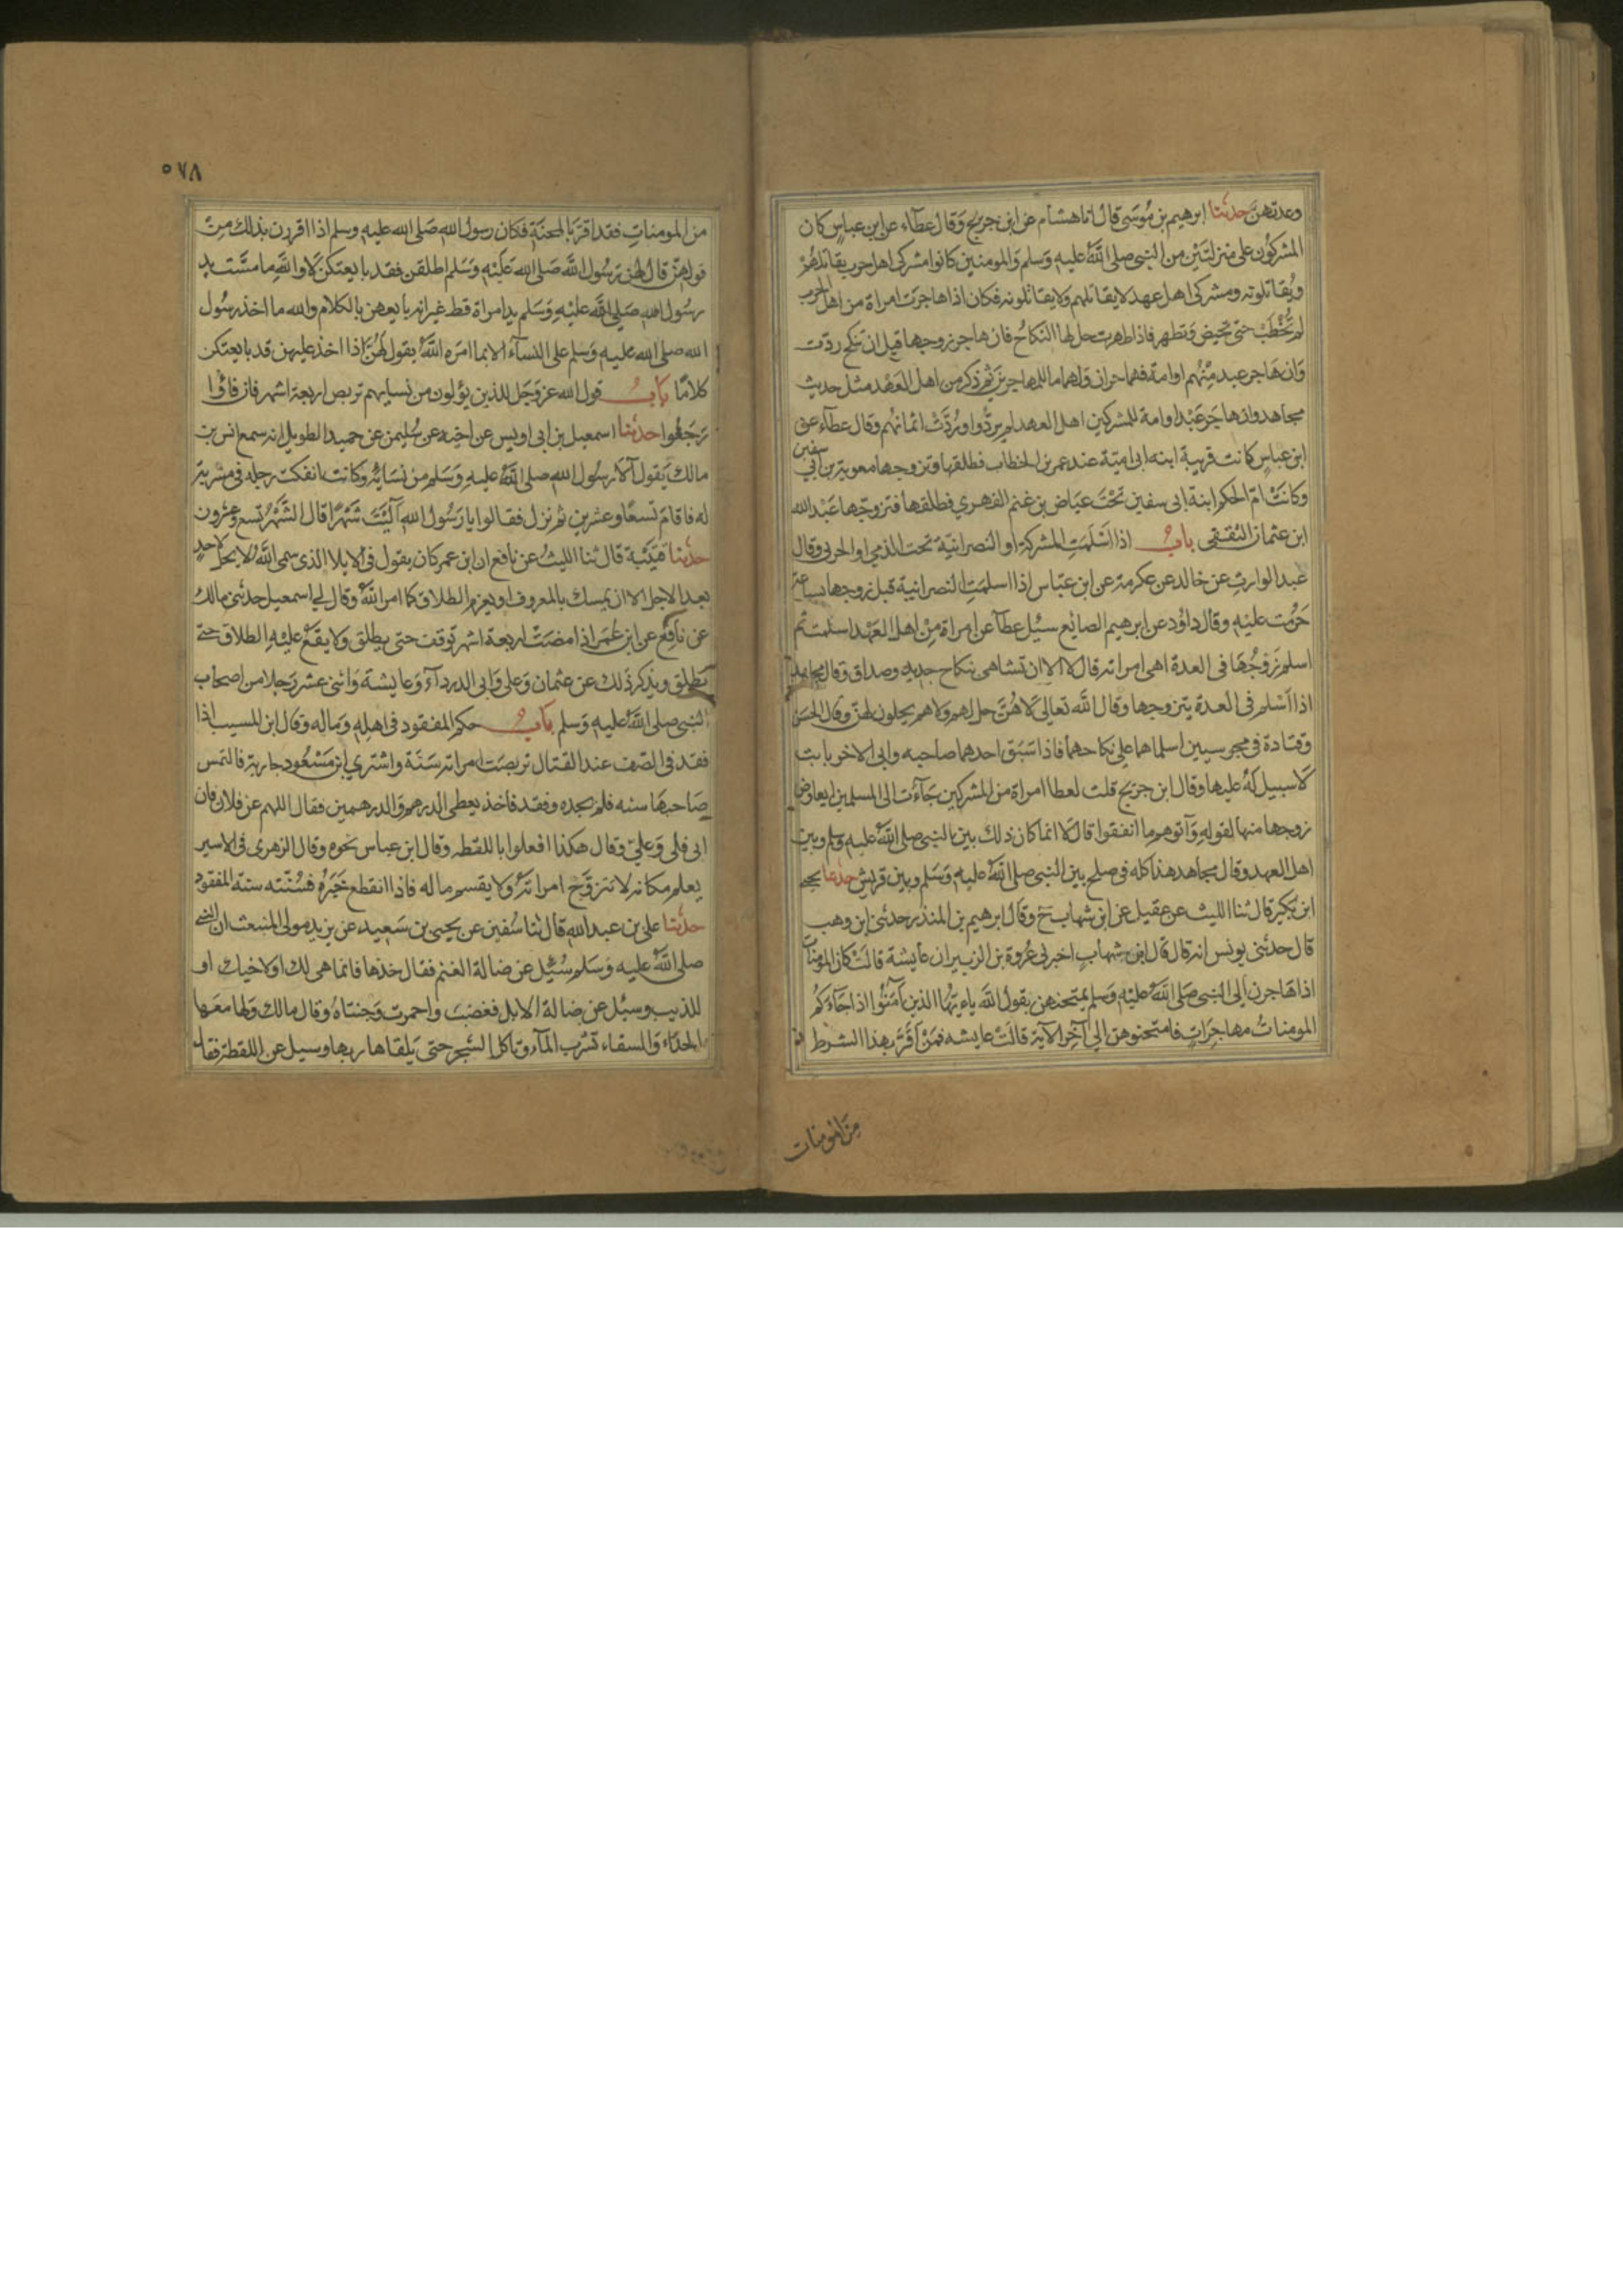 وعدتهن حدثنا ابرهيم بن موسى قال انا هشام عن ابن جريج وقال عطاء عن ابن عباس كان
المشركون على منزلتين من النبي صلى الله عليه وسلم والمومنين كانوا مشركي اهل حرب يقاتلهم
ويقاتلونه ومشركي اهل عهد لا يقاتلهم ولا يقاتلونه فكان اذا هاجرت امراة من اهل الحرب
لم تخطب حتى تحيض وتطهر فاذا طهرت حل لها النكاح فان هاجر زوجها قبل ان تنكح ردت
وان هاجر عبد منهم او امة فهما حران ولهما ما للمهاجرين ثم ذكر من اهل العهد مثل حديث
مجاهد وان هاجر عبد او امة للمشركين اهل العهد لم يردوا وردت اثمانهم وقال عطاء عن
ابن عباس كانت قريبة ابنه ابي امية عند عمر بن الخطاب فطلقها وتزوجها معوية بن ابي سفين
وكانت ام الحكم ابنة ابي سفين تحت عياض بن غنم الفهري فطلقها فتزوجها عبد الله
ابن عثمان الثقفي باب اذا اسلمت المشركة او النصرانية تحت الذمي او الحربي وقال
عبد الوارث عن خالد عن عكرمة عن ابن عباس اذا اسلمت النصرانية قبل زوجها بساعة
حرمت عليه وقال داؤد عن ابرهيم الصائع سئل عطآ عن امراة من اهل العهد اسلمت ثم
اسلم زوجها في العدة اهي امراته قال لا الا ان تشا هي بنكاح جديد وصداق وقال مجاهد
اذا اسلم في العدة يتزوجها وقال الله تعالى لا هن حل لهم ولا هم يحلون لهن وقال الحسن
وقتادة في مجوسيين اسلما هما على نكاحهما فاذا سبق احدهما صاحبه وابى الاخر بانت
لا سبيل له عليها وقال ابن جريج قلت لعطا امراة من المشركين جاءت الى المسلمين ايعاوض
زوجها منها لقوله وآتوهم ما انفقوا قال لا انما كان ذلك بين النبي صلى الله عليه وسلم وبين
اهل العهد وقال مجاهد هذا كله في صلح بين النبي صلى الله عليه وسلم وبين قريش حدثنا يحي
ابن بكير قال ثنا الليث عن عقيل عن ابن شهاب ح وقال ابرهيم بن المنذر حدثني ابن وهب
قال حدثني يونس انه قال قال ابن شهاب اخبرني عروة بن الزبير ان عايشة قالت كان المومنات
اذا هاجرن الى النبي صلى الله عليه وسلم يمتحنهن بقول الله ياءيها الذين آمنوا اذا جاءكم
المومنات مهاجرات فامتحنوهن الى آخر الآية قالت عايشه فمن اقر بهذا الشرط
من المومنات
٥٧٨
من المومنات فقد اقر بالمحنة فكان رسول الله صلى الله عليه وسلم اذا اقررن بذلك من
قولهن قال لهن رسول الله صلى الله عليه وسلم اطلقن فقد بايعتكن لا والله ما مست يد
رسول الله صلى الله عليه وسلم يد امراة قط غير انه بايعهن بالكلام والله ما اخذ رسول
الله صلى الله عليه وسلم على النسآء الا بما امره الله يقول لهن اذا اخذ عليهن قد بايعتكن
كلاما باب قول الله عز وجل للذين يؤلون من نسايهم تربص اربعة اشهر فان فاؤا
رجعوا حدثنا اسمعيل بن ابي اويس عن اخيه عن سليمن عن حميد الطويل انه سمع انس بن
مالك يقول آلا رسول الله صلى الله عليه وسلم من نسائه وكانت انفكت رجله في مشربة
له فاقام تسعا وعشرين ثم نزل فقالوا يا رسول الله آليت شهرا قال الشهر تسع وعشرون
حدثنا قتيبة قال ثنا الليث عن نافع ان ابن عمر كان يقول في الايلا الذي سمى الله لا يحل لاحد
بعد الاجل الا ان يمسك بالمعروف او يعزم الطلاق كما امر الله وقال لي اسمعيل حدثني مالك
عن نافع عن ابن عمر اذا مضت اربعة اشهر توقف حتى يطلق ولا يقع عليه الطلاق حتى
يطلق ويذكر ذلك عن عثمان وعلي وابي الدرداء وعايشة واثني عشر رجلا من اصحاب
النبي صلى الله عليه وسلم باب حكم المفقود في اهله وماله وقال ابن المسيب اذا
فقد في الصف عند القتال تربصت امراته سنة واشتري ابن مسعود جارية فالتمس
صاحبها سنه فلم يجده وفقد فاخذ يعطي الدرهم والدرهمين فقال اللهم عن فلان فان
ابى فلي وعلي وقال هكذا افعلوا باللقطه وقال ابن عباس نحوه وقال الزهري في الاسير
يعلم مكانه لا تتزوج امراته ولا يقسم ماله فاذا انقطع خبره فسنته سنة المفقود
حدثنا علي بن عبد الله قال ثنا سفين عن يحيى بن سعيد عن يزيد مولى المنبعث ان النبي
صلى الله عليه وسلم سئل عن ضالة الغنم فقال خذها فانما هي لك او لاخيك او
للذيب وسئل عن ضالة الابل فغضب واحمرت وجنتاه وقال مالك ولها معها
الحذاء والسقاء تشرب المآء وتاكل الشجر حتى يلقاها ربها وسيل عن اللقطة فقال